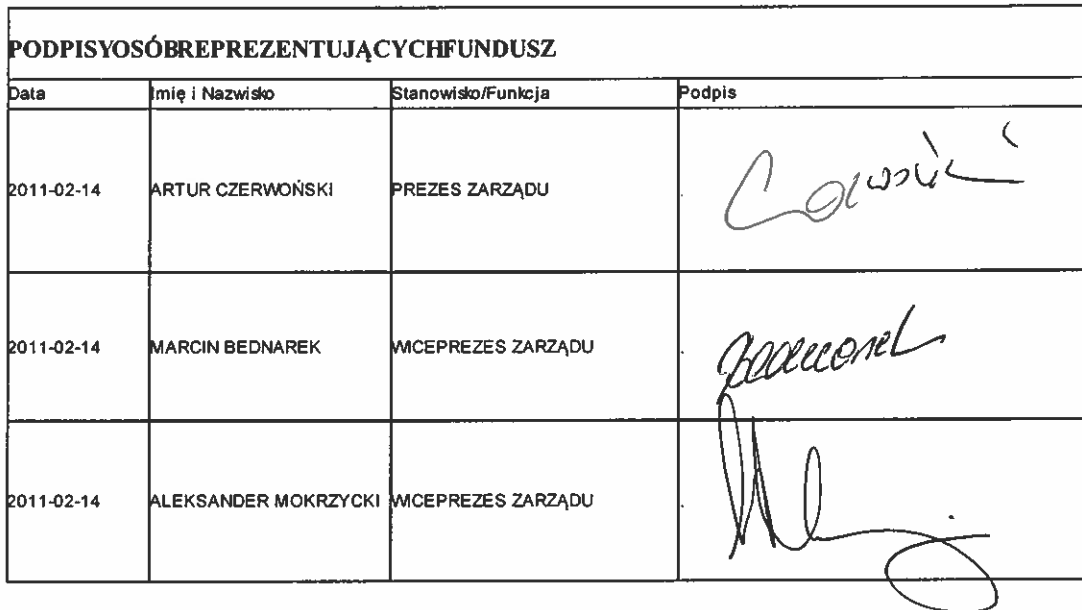 PODPISYOSÓBREPREZENTUJĄCYCHFUNDUSZ
Data Imię i Nazwisko Stanowisko/Funkcja Podpis
2011-02-14 ARTUR CZERWOŃSKI PREZES ZARZĄDU
2011-02-14 MARCIN BEDNAREK WICEPREZES ZARZĄDU
2011-02-14 ALEKSANDER MOKRZYCKI WICEPREZES ZARZĄDU